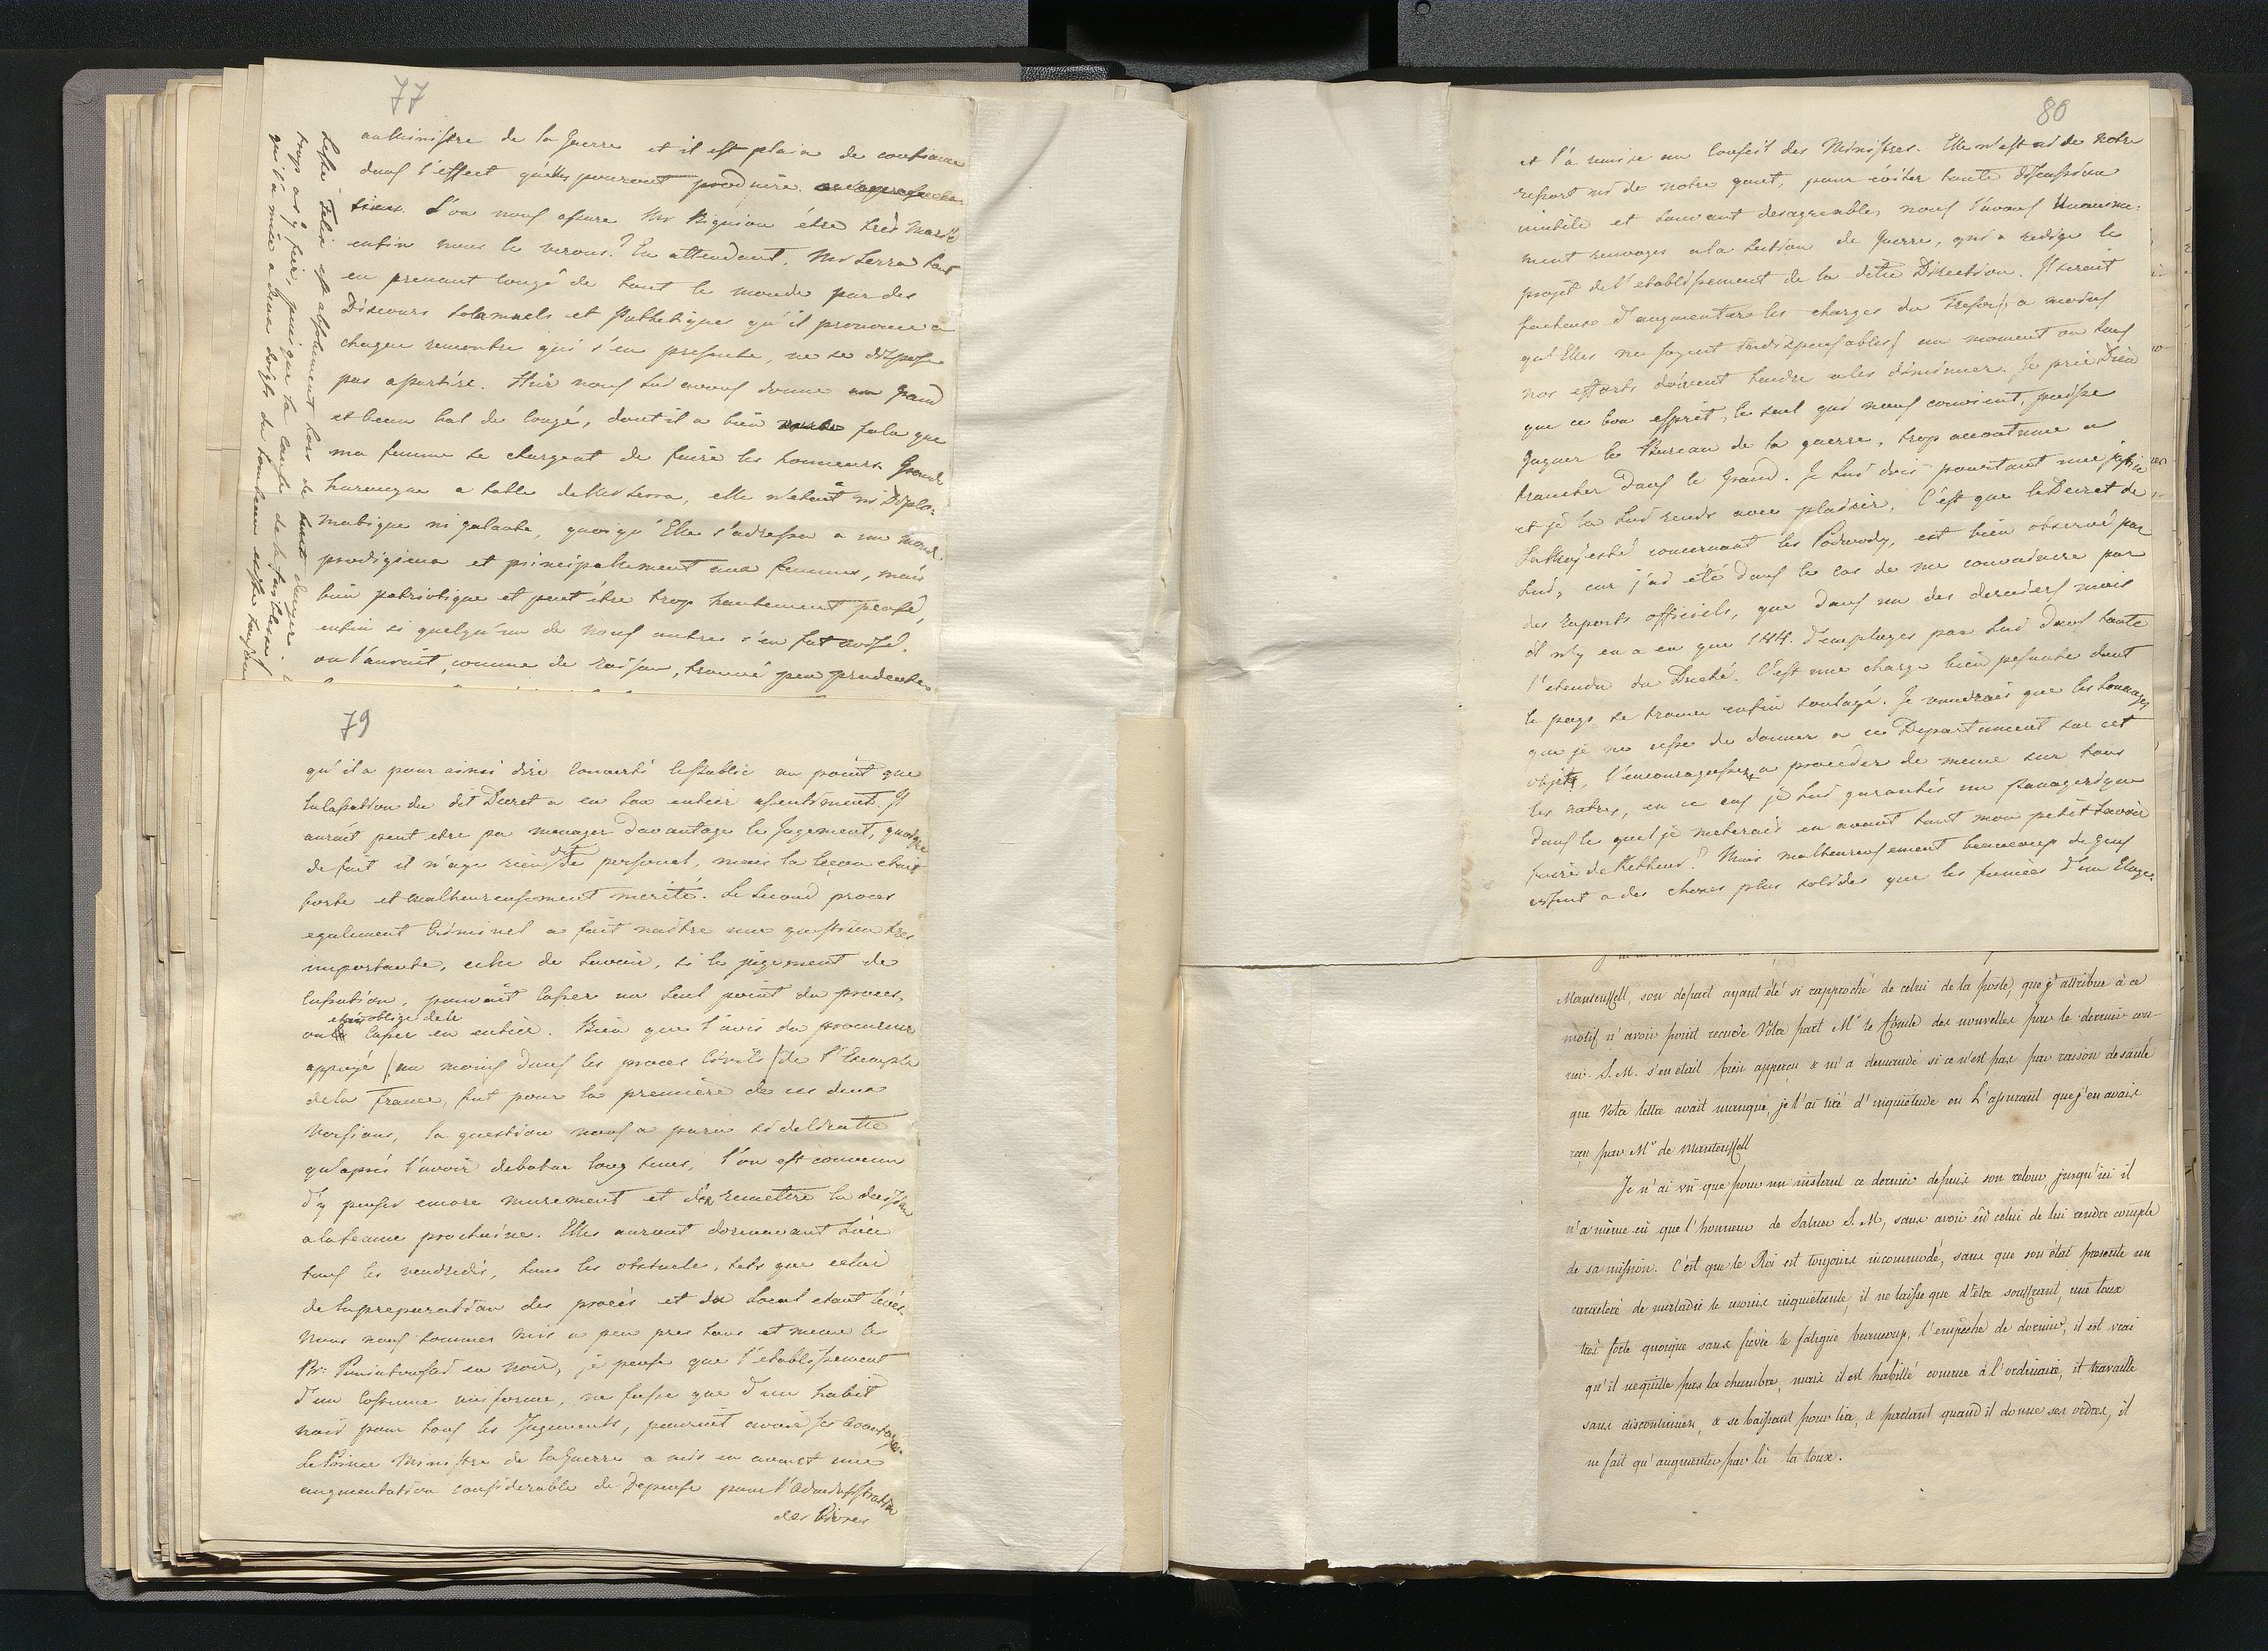 77
au Ministre de la Guerre et il est plain de confiance
dans l'effect qu'elles pouront produire.
L'on nous assure Mr Bignion étre tres
enfin nous le verons? En attendant, Mr Serra tout
en prenant congé de tout le monde par des
Discours solamnels et Pathetiques qu'il prononce a
chaque rencontre qui s'en presente, ne se dispose
pas a partire. Hier nous lui avons donné un grand
et beau bal de congé, dont il a bien falu que
ma femme se chargeat de faire les honneurs. Grande
harangue a table de Mr Serra, elle n'etait ni Diplo:
matique ni galante, quoiqu'Elle s'adressa a un monde
prodigieux et principalement aux femmes, mais
bien patriotique et peut étre trop hautement pensé,
enfin si quelqu'un de nous autres s'en fut avisé,
on l'auroit, comme de raison, trouvé peu prudente
est absolument hors de tout danger
trop oss y fier, puisque la cause de la faiblesse
qui l'a mise a deux doigts du tombeau existe toujours
79
qu'il a pour ainsi dire converti le Public au point que
la Cassation du dit Decret a eu son entier assentiment. Il
auroit peut etre pu menager davantage le Jugement, quoique
de fait il n'aye rien dit de personel, mais la leçon etait
forte et malheureusement merité. Le Second proces
egalement Criminel a fait naitre une question tres
importante, celle de Savoir, si le jugement de
Cassation, pouvait casser un seul point du proces,
etait obligé de le
ou casser en entier. Bien que l'avis du procureur
appuyé (au moins dans les proces Civils) de l'Exemple
de la France, fut pour la premiére de ces deux
versions, la question nous a paru si delicatte
qu'aprés l'avoir debatue long tems, l'on est convenu
d'y penser encore murement et d'en remettre la decision
a la seance prochaine. Elles auront dorenavant Lieu
tous les vendredis, tous les obstacles, tels que celui
de la preparation des procés et du Local etant levés.
Nous nous sommes mis a peu pres tous et meme le
en noir, je pense que l'etablissement
d'un Costume uniforme, ne fusse que d'un habit
noir pour tous les Jugements, pouroit avoir ses avantages.
Le Prince Ministre de la Guerre a mis en avant une
augmentation considerable de Depense pour l'Administration
des Vivres
80
et l'a remise au Conseil des Ministres. Elle n'est ni de notre
resort ni de notre gout, pour éviter toute Discussion
inutile et souvant desagreable, nous l'avons Unanime:
ment renvoyes a la Section de Guerre, qui a redigé le
projét de l'etablissement de la dite Direction. Il seroit
facheux d'augmenter les charges du Tresor, a moins
qu'Elles ne soyent indispensables, au moment ou tous
nos efforts doivent tendre a les diminuer. Je prie Dieu
que ce bon esprit, le seul qui nous convient, puisse
gagner le Bureau de la guerre, trop accoutumé a
trancher dans le Grand. Je lui dois pourtant une justice
et je la lui rends avec plaisir, C'est que le Decret de
Sa Majesté concernant les Podwody, est bien observé par
Lui, car j'ai été dans le cas de me convaincre par
des Raports officiels, que dans un des derniers mois
il n'y en a eu que 144. d'employes par lui dans toute
l'etendu du Duché. C'est une charge bien pesante dont
le pays se trouve enfin soulagé. Je voudrais que les louanges
que je ne cesse de donner a ce Departement sur cet
objet, l'encouragassent a proceder de meme sur tous
les autres, en ce cas je lui garantis un panagerique
dans le quel je meterais en avant tout mon petit savoir
faire de Retheur? Mais malheureusement beaucoup de gens
visent a des choses plus solides que les fumées d'un Eloge.
Manteuffell, son depart ayant été si rapproché de celui de la poste, que j'attribue à ce
motif n'avoir point reçu de Votre part Mr le Comte des nouvelles par le dernier cou-
rier. S. M. s'en était bien apperçu & m'a demandé si ce n'est pas par raison de santé
que Votre lettre avait manqué, je l'ai tiré d'inquiétude en L'assurant que j'en avais
reçu par Mr de Manteuffell
Je n'ai vu que pour un instant ce dernier depuis son retour, jusqu'ici il
n'a même eû que l'honneur de Saluer S. M, sans avoir eû celui de lui rendre compte
de sa mission. C'est que le Roi est toujours incommodé, sans que son état présente un
caractère de maladie le moins inquiétante, il ne laisse que d'être souffrant, une toux
très forte quoique sans fièvre le fatigue beaucoup, l'empêche de dormir, il est vrai
qu'il ne quitte pas la chambre, mais il est habillé comme à l'ordinaire, il travaille
sans discontinuer, & se baissant pour lire, & parlant quand il donne ses ordres, il
ne fait qu'augmenter par là la toux.